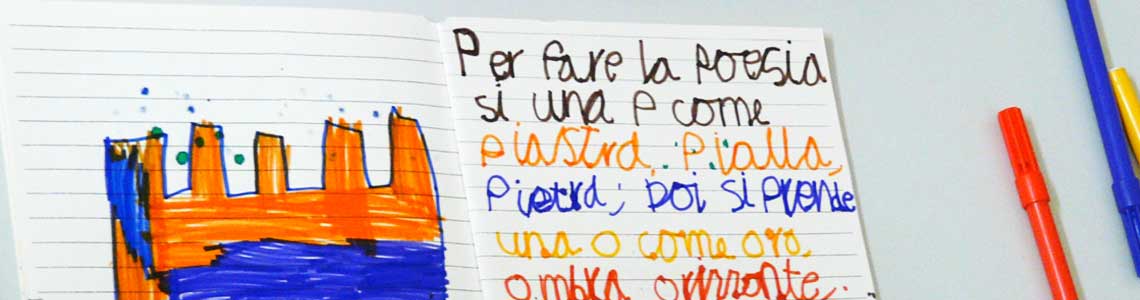 Per fare la poesia
si una P come
piastra, pialla,
Pietra; poi si prende
una o come oro,
ombra, orizzonte.